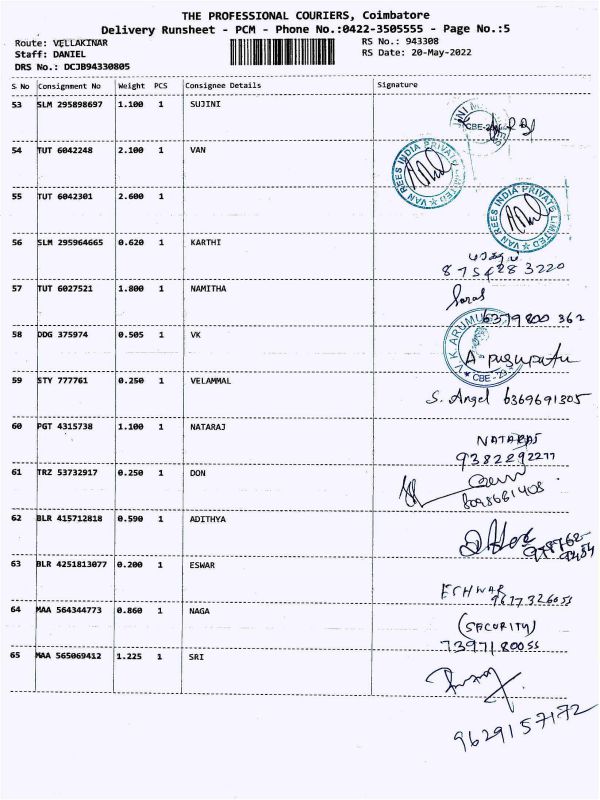 THE PROFESSIONAL COURIERS, Coimbatore
Delivery Runsheet - PCM - Phone No.:0422-3505555 - Page No.:5
Route: VELLAKINAR RS No.: 943308
Staff: DANIEL RS Date: 20-May-2022
DRS No.: DCJB94330805
S No Consignment No Weight PCS Consignee Details Signature
53 SLM 295898697 1.100 1 SUJINI
CBE-2
54 TUT 6042248 2.100 1 VAN
VAN REES INDIA PRIVATE LIMITED
55 TUT 6042301 2.600 1
VAN REES INDIA PRIVATE LIMITED
56 SLM 295964665 0.620 1 KARTHI
8754283220
57 TUT 6027521 1.800 1 NAMITHA
Saras
6379800362
58 DDG 375974 0.505 1 VK
V.K. ARUMU
CBE-29
A pasupatu
59 STY 777761 0.250 1 VELAMMAL
S. Angel 6369691305
60 PGT 4315738 1.100 1 NATARAJ
NATARAJ
9382292277
61 TRZ 53732917 0.250 1 DON
8098661408
62 BLR 415712818 0.590 1 ADITHYA
63 BLR 4251813077 0.200 1 ESWAR
ESHWAR
9677326055
64 MAA 564344773 0.860 1 NAGA
(SECURITY)
7397180055
65 MAA 565069412 1.225 1 SRI
9629157172